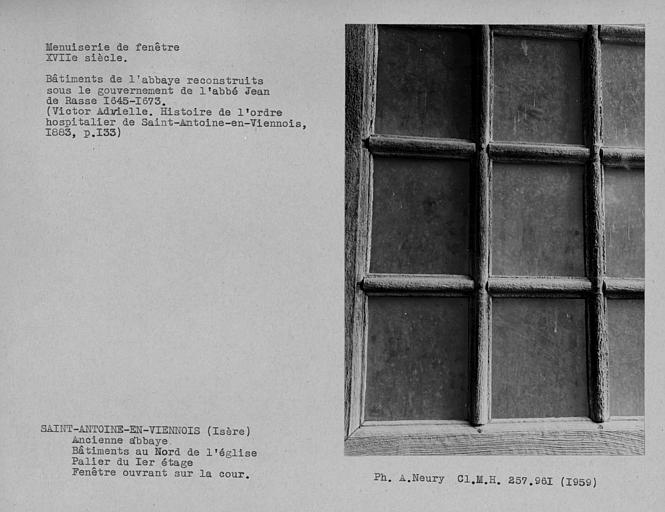 Menuiserie de fenêtre
XVIIe siècle.
Bâtiments de l'abbaye reconstruits
sous le gouvernement de l'abbé Jean
de Rasse I645-I673.
(Victor Advielle. Histoire de l'ordre
hospitalier de Saint-Antoine-en-Viennois,
I883, p.I33)
SAINT-ANTOINE-EN-VIENNOIS (Isère)
Ancienne abbaye
Bâtiments au Nord de l'église
Palier du Ier étage
Fenêtre ouvrant sur la cour.
Ph. A.Neury Cl.M.H. 257.96I (I959)